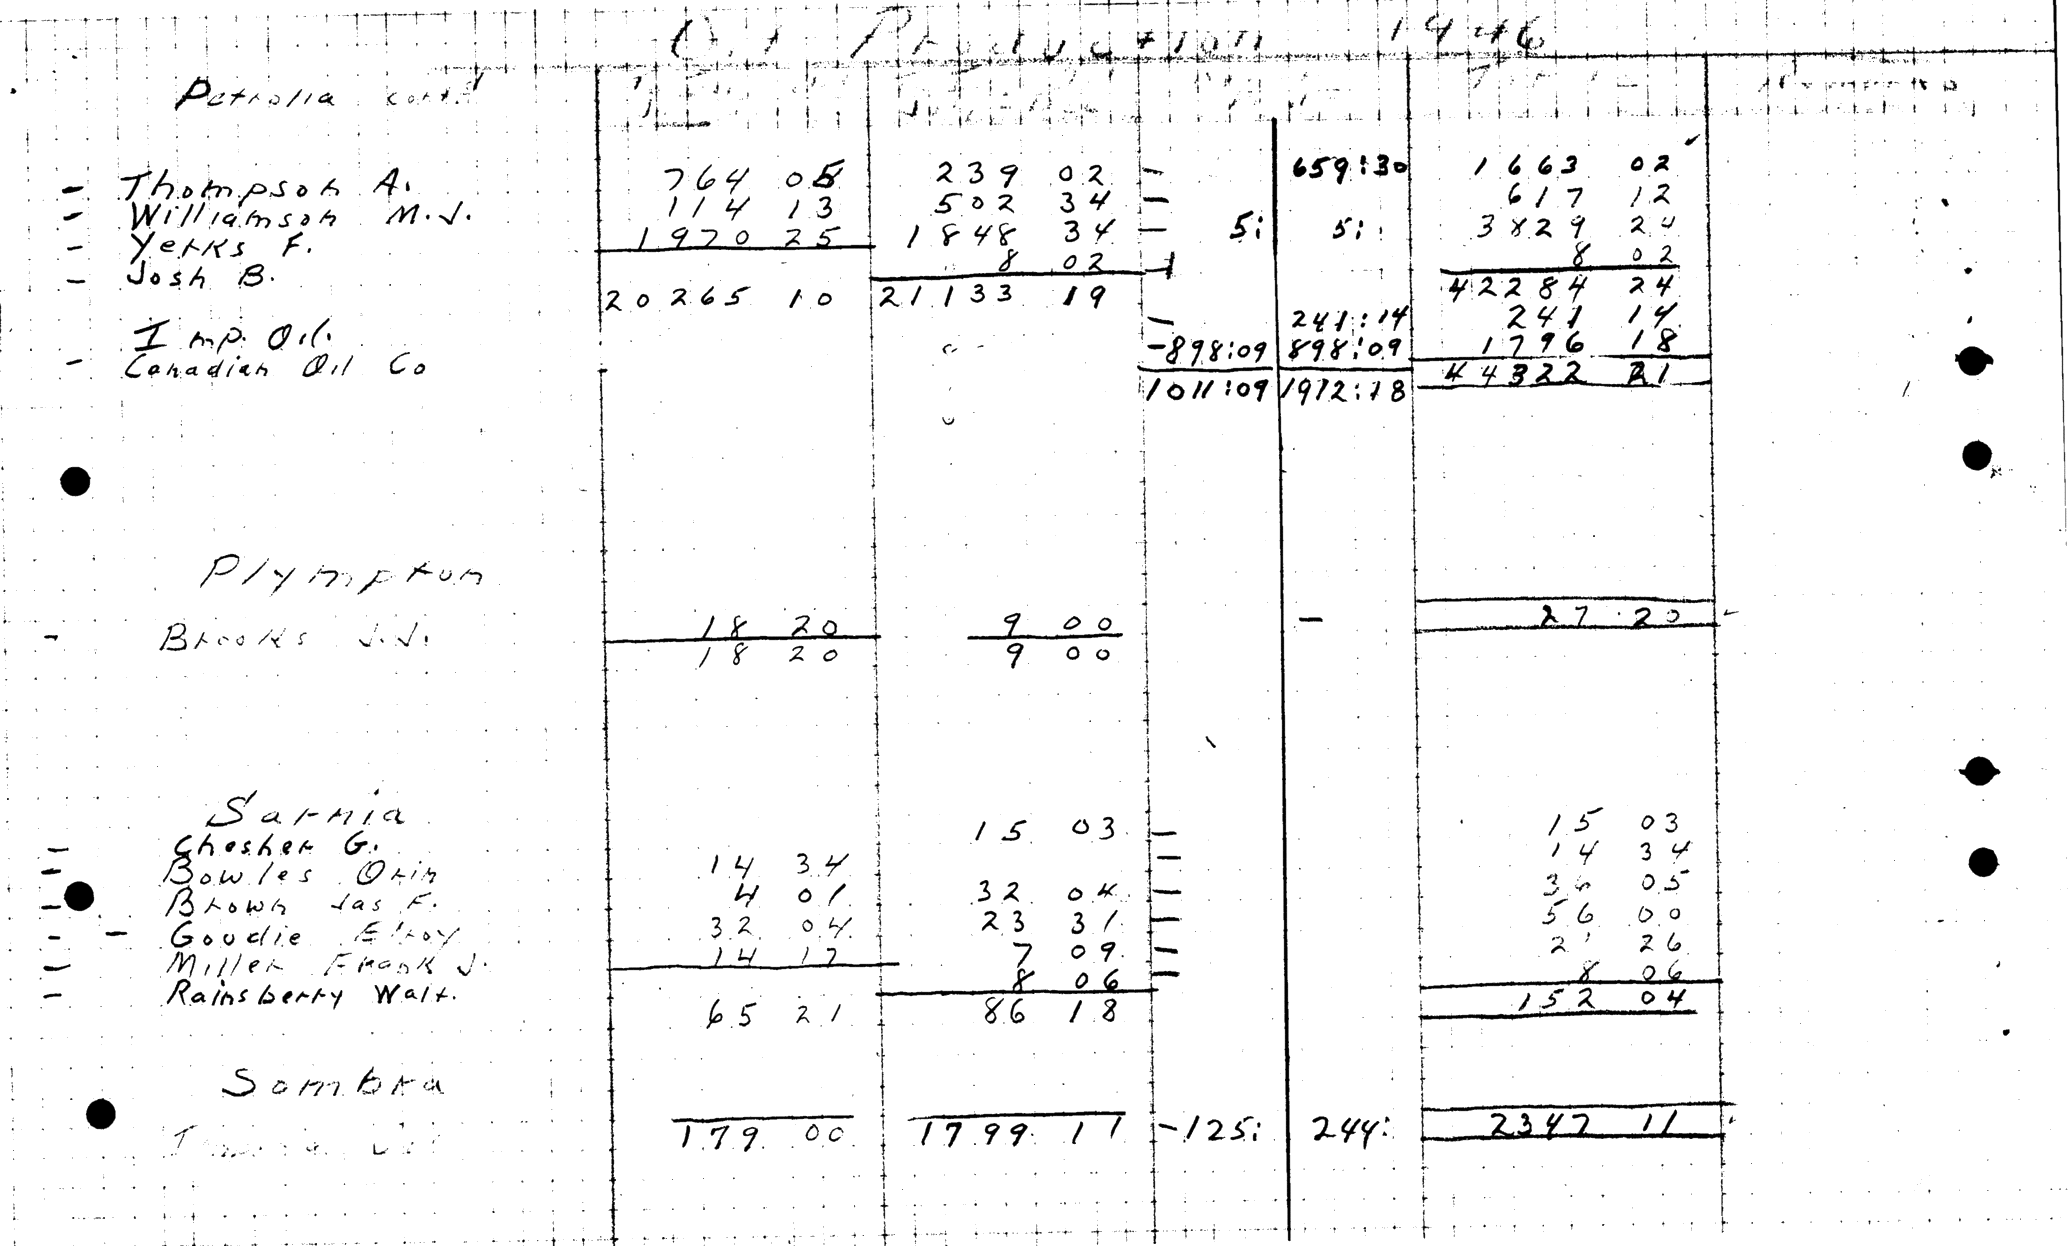 Oil Production 1946
Petrolia cont.
- Thompson A. 764 05 239 02 - 659:30 1663 02
- Williamson M.J. 114 13 502 34 - 617 12
- Yerks F. 1970 25 1848 34 - 5: 5: 3829 24
- Josh B. 8 02 - 8 02
20265 10 21133 19 42284 24
Imp. Oil. - 241:14 241 14
- Canadian Oil Co -898:09 898:09 1796 18
1011:09 1972:18 44322 21
Plympton
- Brooks J.J. 18 20 9 00 - 27 20
18 20 9 00
Sarnia
- Chesher G. 15 03 - 15 03
- Bowles Orin 14 34 - 14 34
- Brown Jas F. 4 01 32 04 - 36 05
- - Goudie Elroy 32 04 23 31 - 56 00
- Miller Frank J. 14 17 7 09 - 21 26
- Rainsberry Walt. 8 06 - 8 06
65 21 86 18 152 04
Sombra
179 00 1799 11 -125: 244: 2347 11